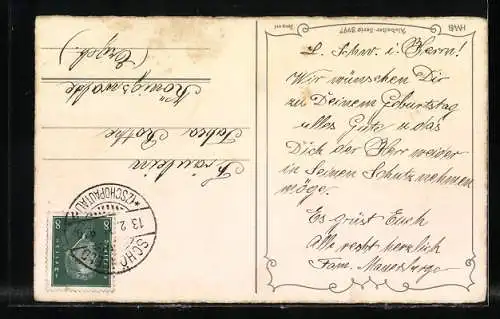 HWB
Künstler-Serie 3497
L. Schw. i. Herrn!
Wir wünschen Dir
zu Deinem Geburtstag
alles Gute u. das
Dich der Herr weider
in Seinen Schutz nehmen
möge.
Es grüst Euch
Alle recht herzlich
Fam. Mauersberger
Fräulein
Rothe
Königswalde
(Erzgeb.)
8
8
ZSCHOPAUTAL
13.2